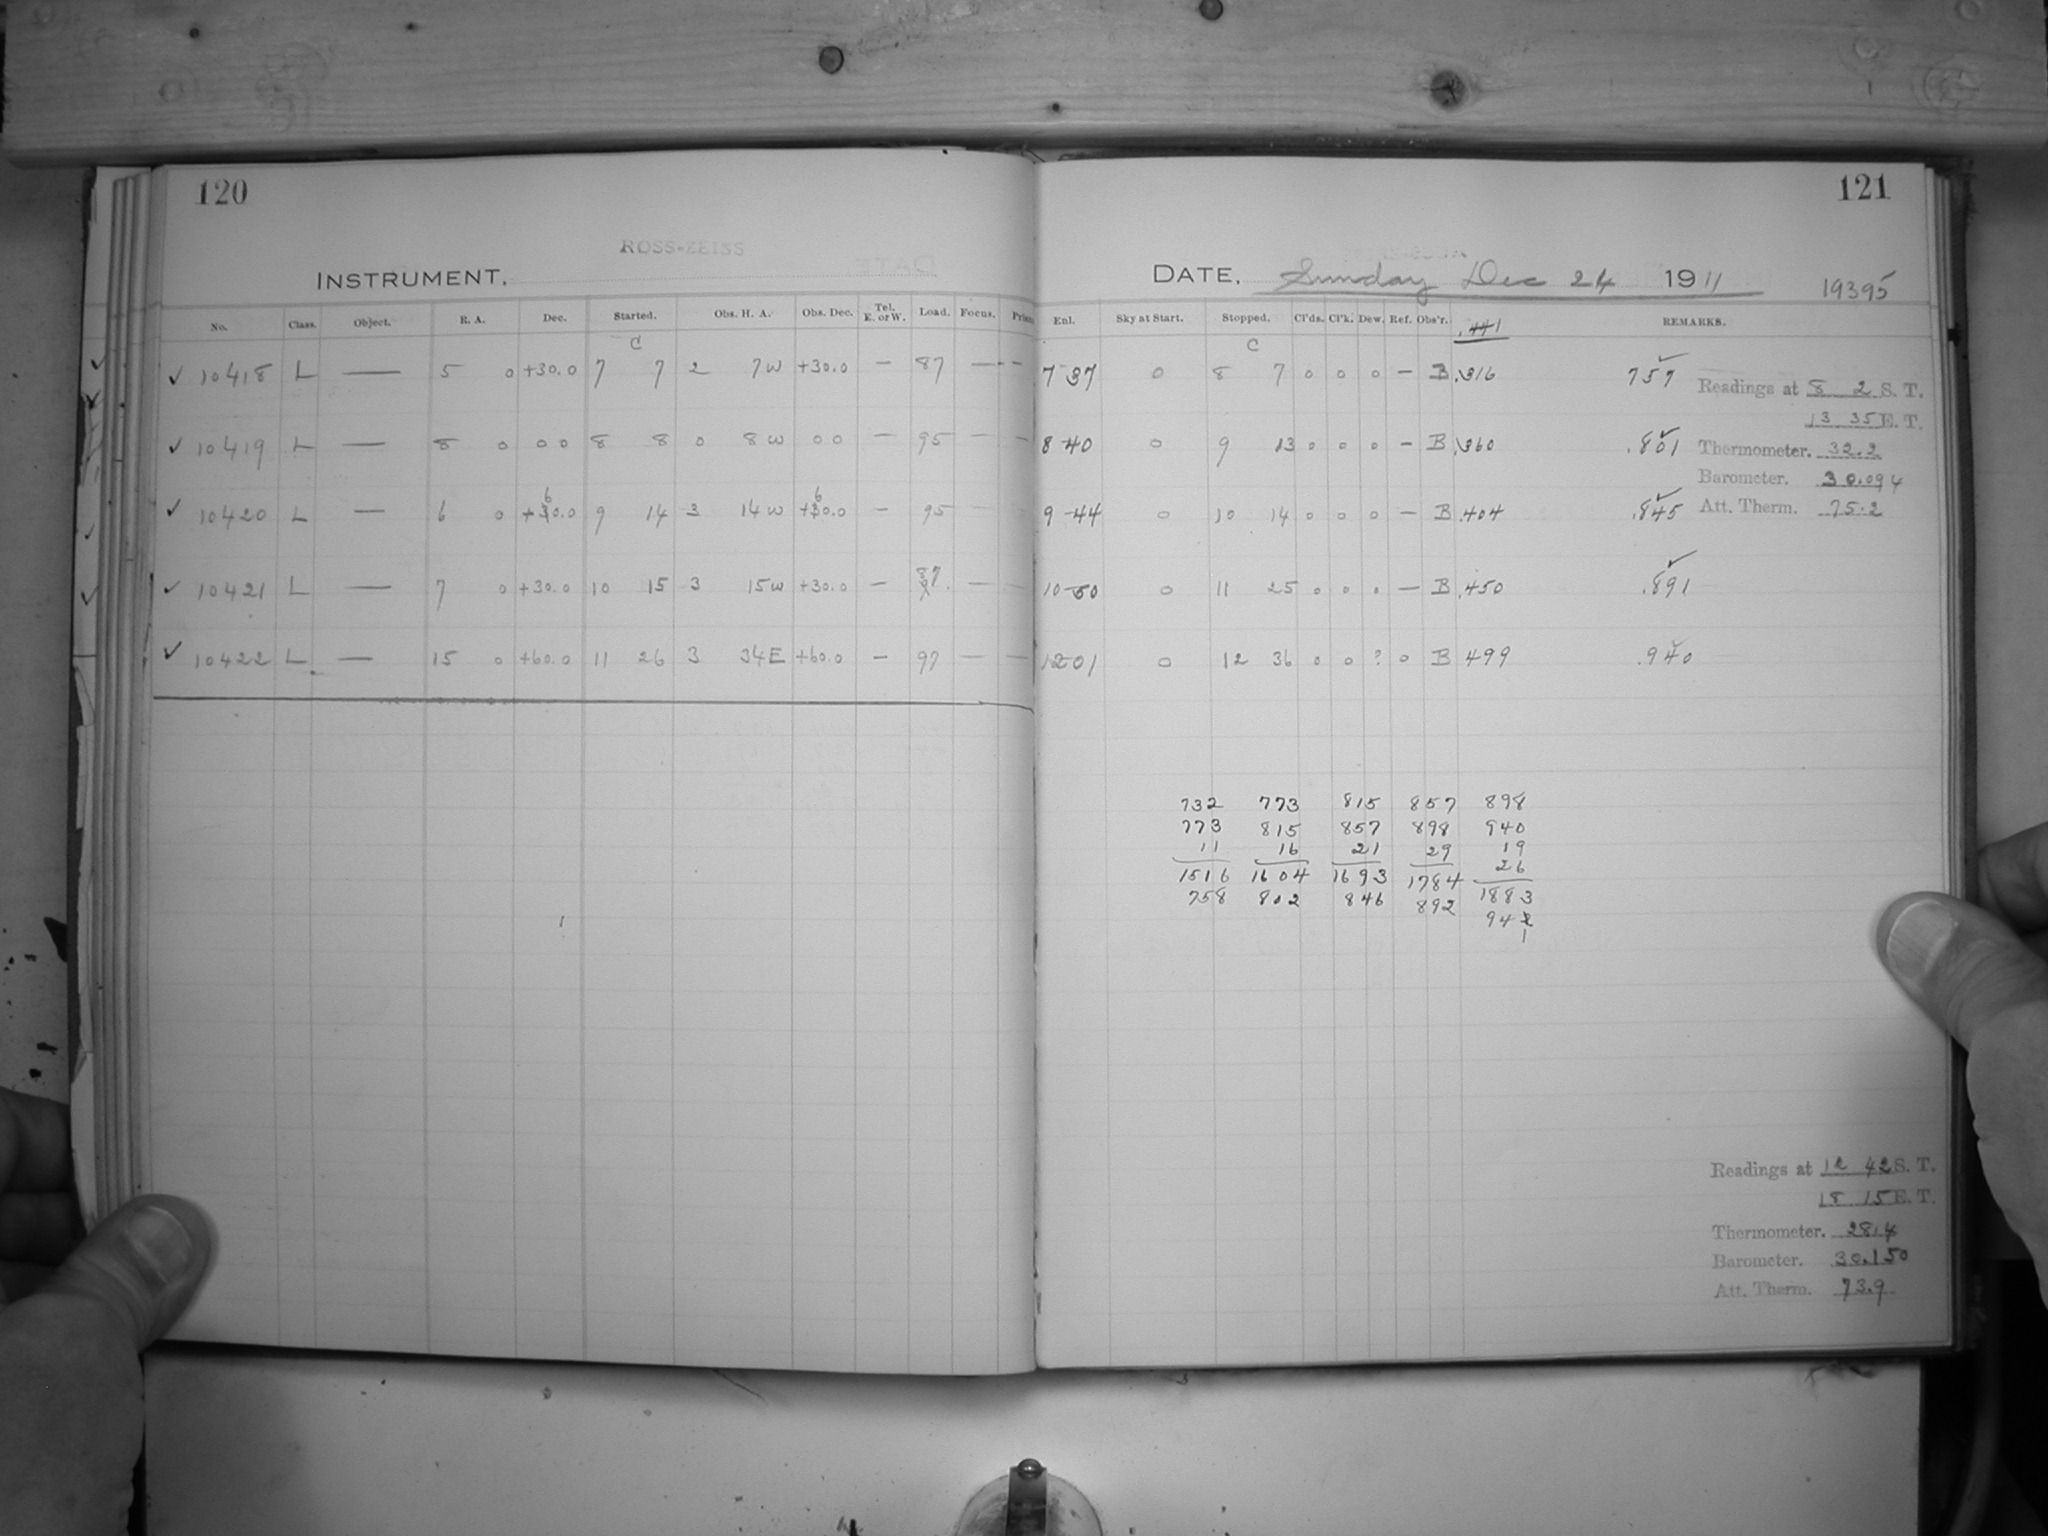 120
ROSS-ZEISS
INSTRUMENT.
No. Class. Object. R. A. Dec. Started. Obs. H. A. Obs. Dec. Tel. E. or W. Load. Focus.
C
✓ 10418 L — 5 0 +30.0 7 7 2 7W +30.0 — 87 — —
✓ 10419 L — 8 0 0 0 8 8 0 8W 0 0 — 95 — —
6 6
✓ 10420 L — 6 0 +30.0 9 14 3 14W +30.0 — 95 — —
✓ 10421 L — 7 0 +30.0 10 15 3 15W +30.0 — 87. — —
✓ 10422 L — 15 0 +60.0 11 26 3 34E +60.0 — 97 — —
121
DATE, Sunday Dec 24 1911 19395
Enl. Sky at Start. Stopped. Cl'ds. Cl'k. Dew. Ref. Obs'r. .441 REMARKS.
C
7 37 0 8 7 0 0 0 — B .316 757
8 40 0 9 13 0 0 0 — B .360 .801
9 44 0 10 14 0 0 0 — B .404 .845
10 50 0 11 25 0 0 0 — B .450 .891
12 01 0 12 36 0 0 ? 0 B 499 .940
Readings at 8 2 S. T.
13 35 E. T.
Thermometer. 32.2
Barometer. 30.094
Att. Therm. 75.2
732 773 815 857 898
773 815 857 898 940
11 16 21 29 19
26
1516 1604 1693 1784 1883
758 802 846 892 942
1
Readings at 12 42 S. T.
18 15 E. T.
Thermometer. 28.4
Barometer. 30.150
Att. Therm. 73.9